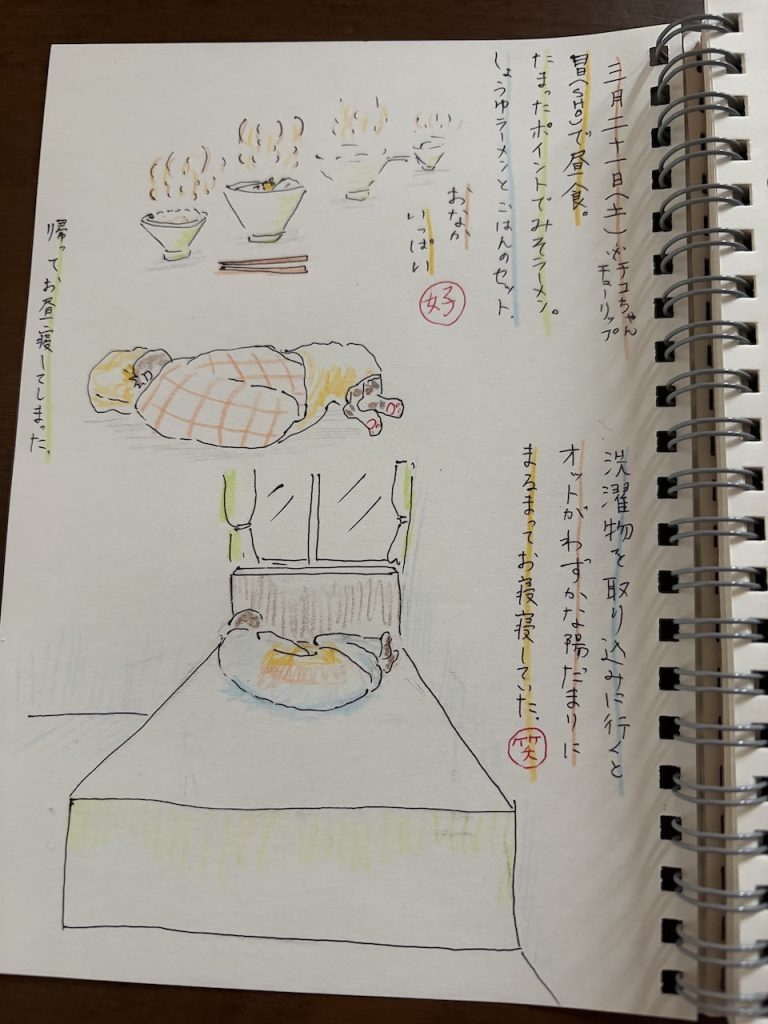 三月二十一日(土)
※チコちゃん
チューリップ
昌(SHO)で昼食。
たまったポイントでみそラーメン。
しょうゆラーメンとごはんのセット。
おなか
いっぱい
好
帰ってお昼寝してしまった。
洗濯物を取り込みに行くと
オットがわずかな陽だまりに
まるまってお寝寝していた。
笑